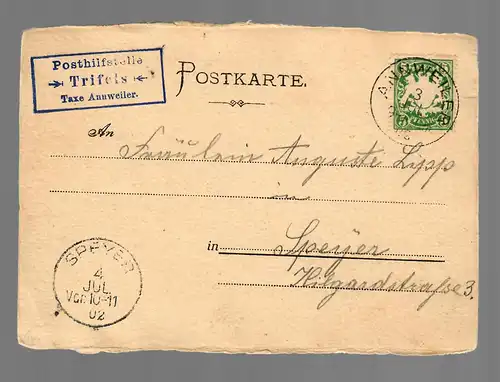 Posthilfstelle
Trifels
Taxe Annweiler.
POSTKARTE.
ANNWEILER
3
An
Fräulein Auguste Lipp
in
in Speyer
Hilgardstraße 3.
SPEYER
4
JUL
Vor. 10-11
02